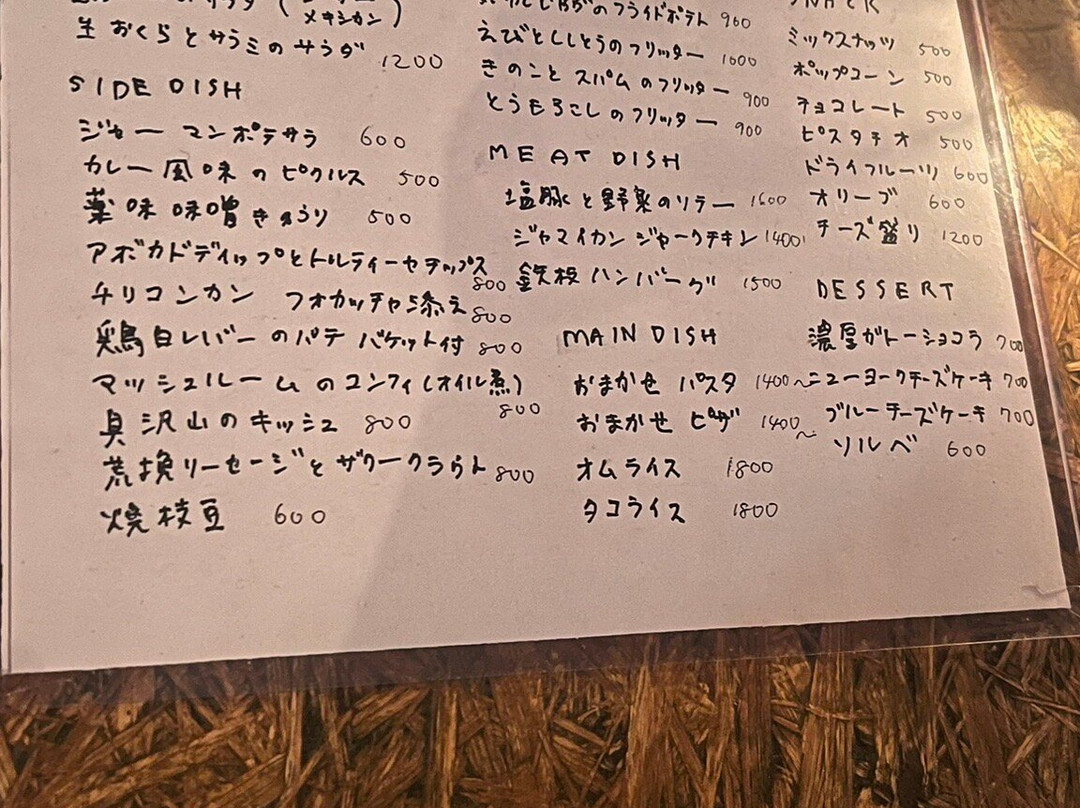 メキシカン)
生おくらとサラミのサラダ 1200
SIDE DISH
ジャーマンポテサラ 600
カレー風味のピクルス 500
薬味味噌きゅうり 500
アボカドディップとトルティーヤチップス 800
チリコンカン フォカッチャ添え 800
鶏白レバーのパテ バケット付 800
マッシュルームのコンフィ(オイル煮) 800
具沢山のキッシュ 800
荒挽ソーセージとザワークラウト 800
焼枝豆 600
のフライドポテト 900
えびとししとうのフリッター 1000
きのことスパムのフリッター 900
とうもろこしのフリッター 900
MEAT DISH
塩豚と野菜のソテー 1600
ジャマイカンジャークチキン 1400
鉄板ハンバーグ 1500
MAIN DISH
おまかせ パスタ 1400〜
おまかせ ピザ 1400〜
オムライス 1800
タコライス 1800
ミックスナッツ 500
ポップコーン 500
チョコレート 500
ピスタチオ 500
ドライフルーツ 600
オリーブ 600
チーズ盛り 1200
DESSERT
濃厚ガトーショコラ 700
ニューヨークチーズケーキ 700
ブルーチーズケーキ 700
ソルベ 600